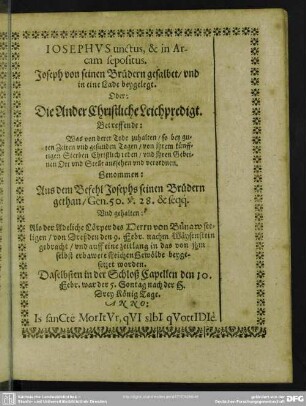 IOSEPHVS unctus, & in Ar-
cam sepositus.
Joseph von seinen Brüdern gesalbet/ vnd
in eine Lade beygelegt.
Oder:
Die Ander Christliche Leichpredigt.
Betreffende:
Was von derer Tode zuhalten/ so bey gu-
ten Zeiten vnd gesunden Tagen/ von jhrem künff-
tigen Sterben Christlich reden/ vnd jhren Gebei-
nen Ort und Stedt ausehen vnd verordnen.
Genommen:
Aus dem Befehl Josephs seinen Brüdern
gethan/ Gen. 50. v. 28. & seqq.
Vnd gehalten:
Als der Adeliche Cörper des Herrn von Bünaw se-
ligen/ von Dreßden den 9. Febr. nachm Weysenstein
gebracht/ vnd auff eine zeitlang in das von jhm
selbst erbawete Kirchen Gewölbe beyge-
setzet worden.
Daselbsten in der Schloß Capellen den 10.
Febr. war der 5. Sontag nach der H.
Drey König Tage.
ANNO:
Is sanCte MorItVr, qVI sIbI qVottIDIe.